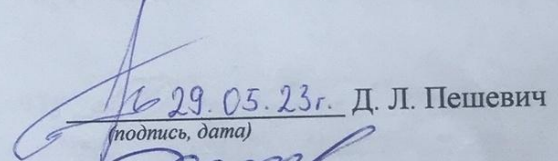 29.05.23г. Д. Л. Пешевич
(подпись, дата)